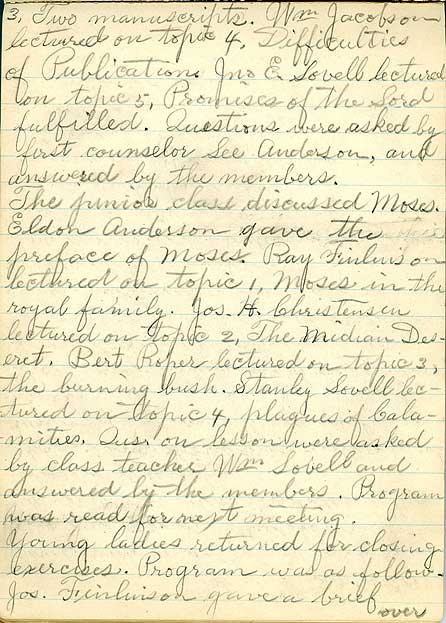 3, Two manuscripts. Wm Jacobson
lectured on topic 4, Difficulties
of Publication. Jno E. Lovell lectured
on topic 5, Promises of the Lord
fulfilled. Questions were asked by
first counselor Lee Anderson, and
answered by the members.
The junior class discussed Moses.
Eldon Anderson gave the
preface of Moses. Ray Finlinson
lectured on topic 1, Moses in the
royal family. Jos. H. Christensen
lectured on topic 2, The Midian Des-
eret. Bert Roper lectured on topic 3,
the burning bush. Stanley Lovell lec-
tured on topic 4, plagues of Cala-
mities. Qus. on lesson were asked
by class teacher Wm Lovell and
answered by the members. Program
was read for next meeting.
Young ladies returned for closing
exercises. Program was as follow-
Jos. Finlinson gave a brief
over